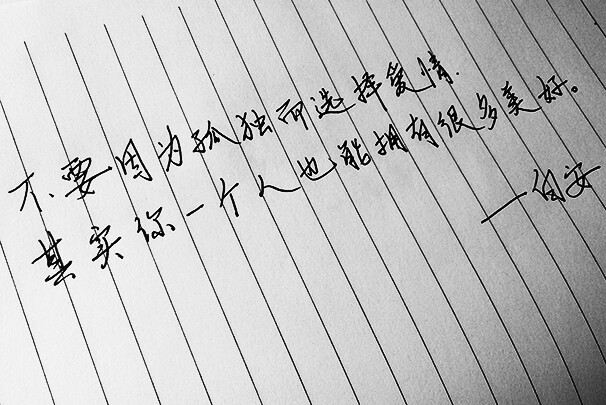 不要因为孤独而选择爱情.
其实你一个人也能拥有很多美好。
一白安